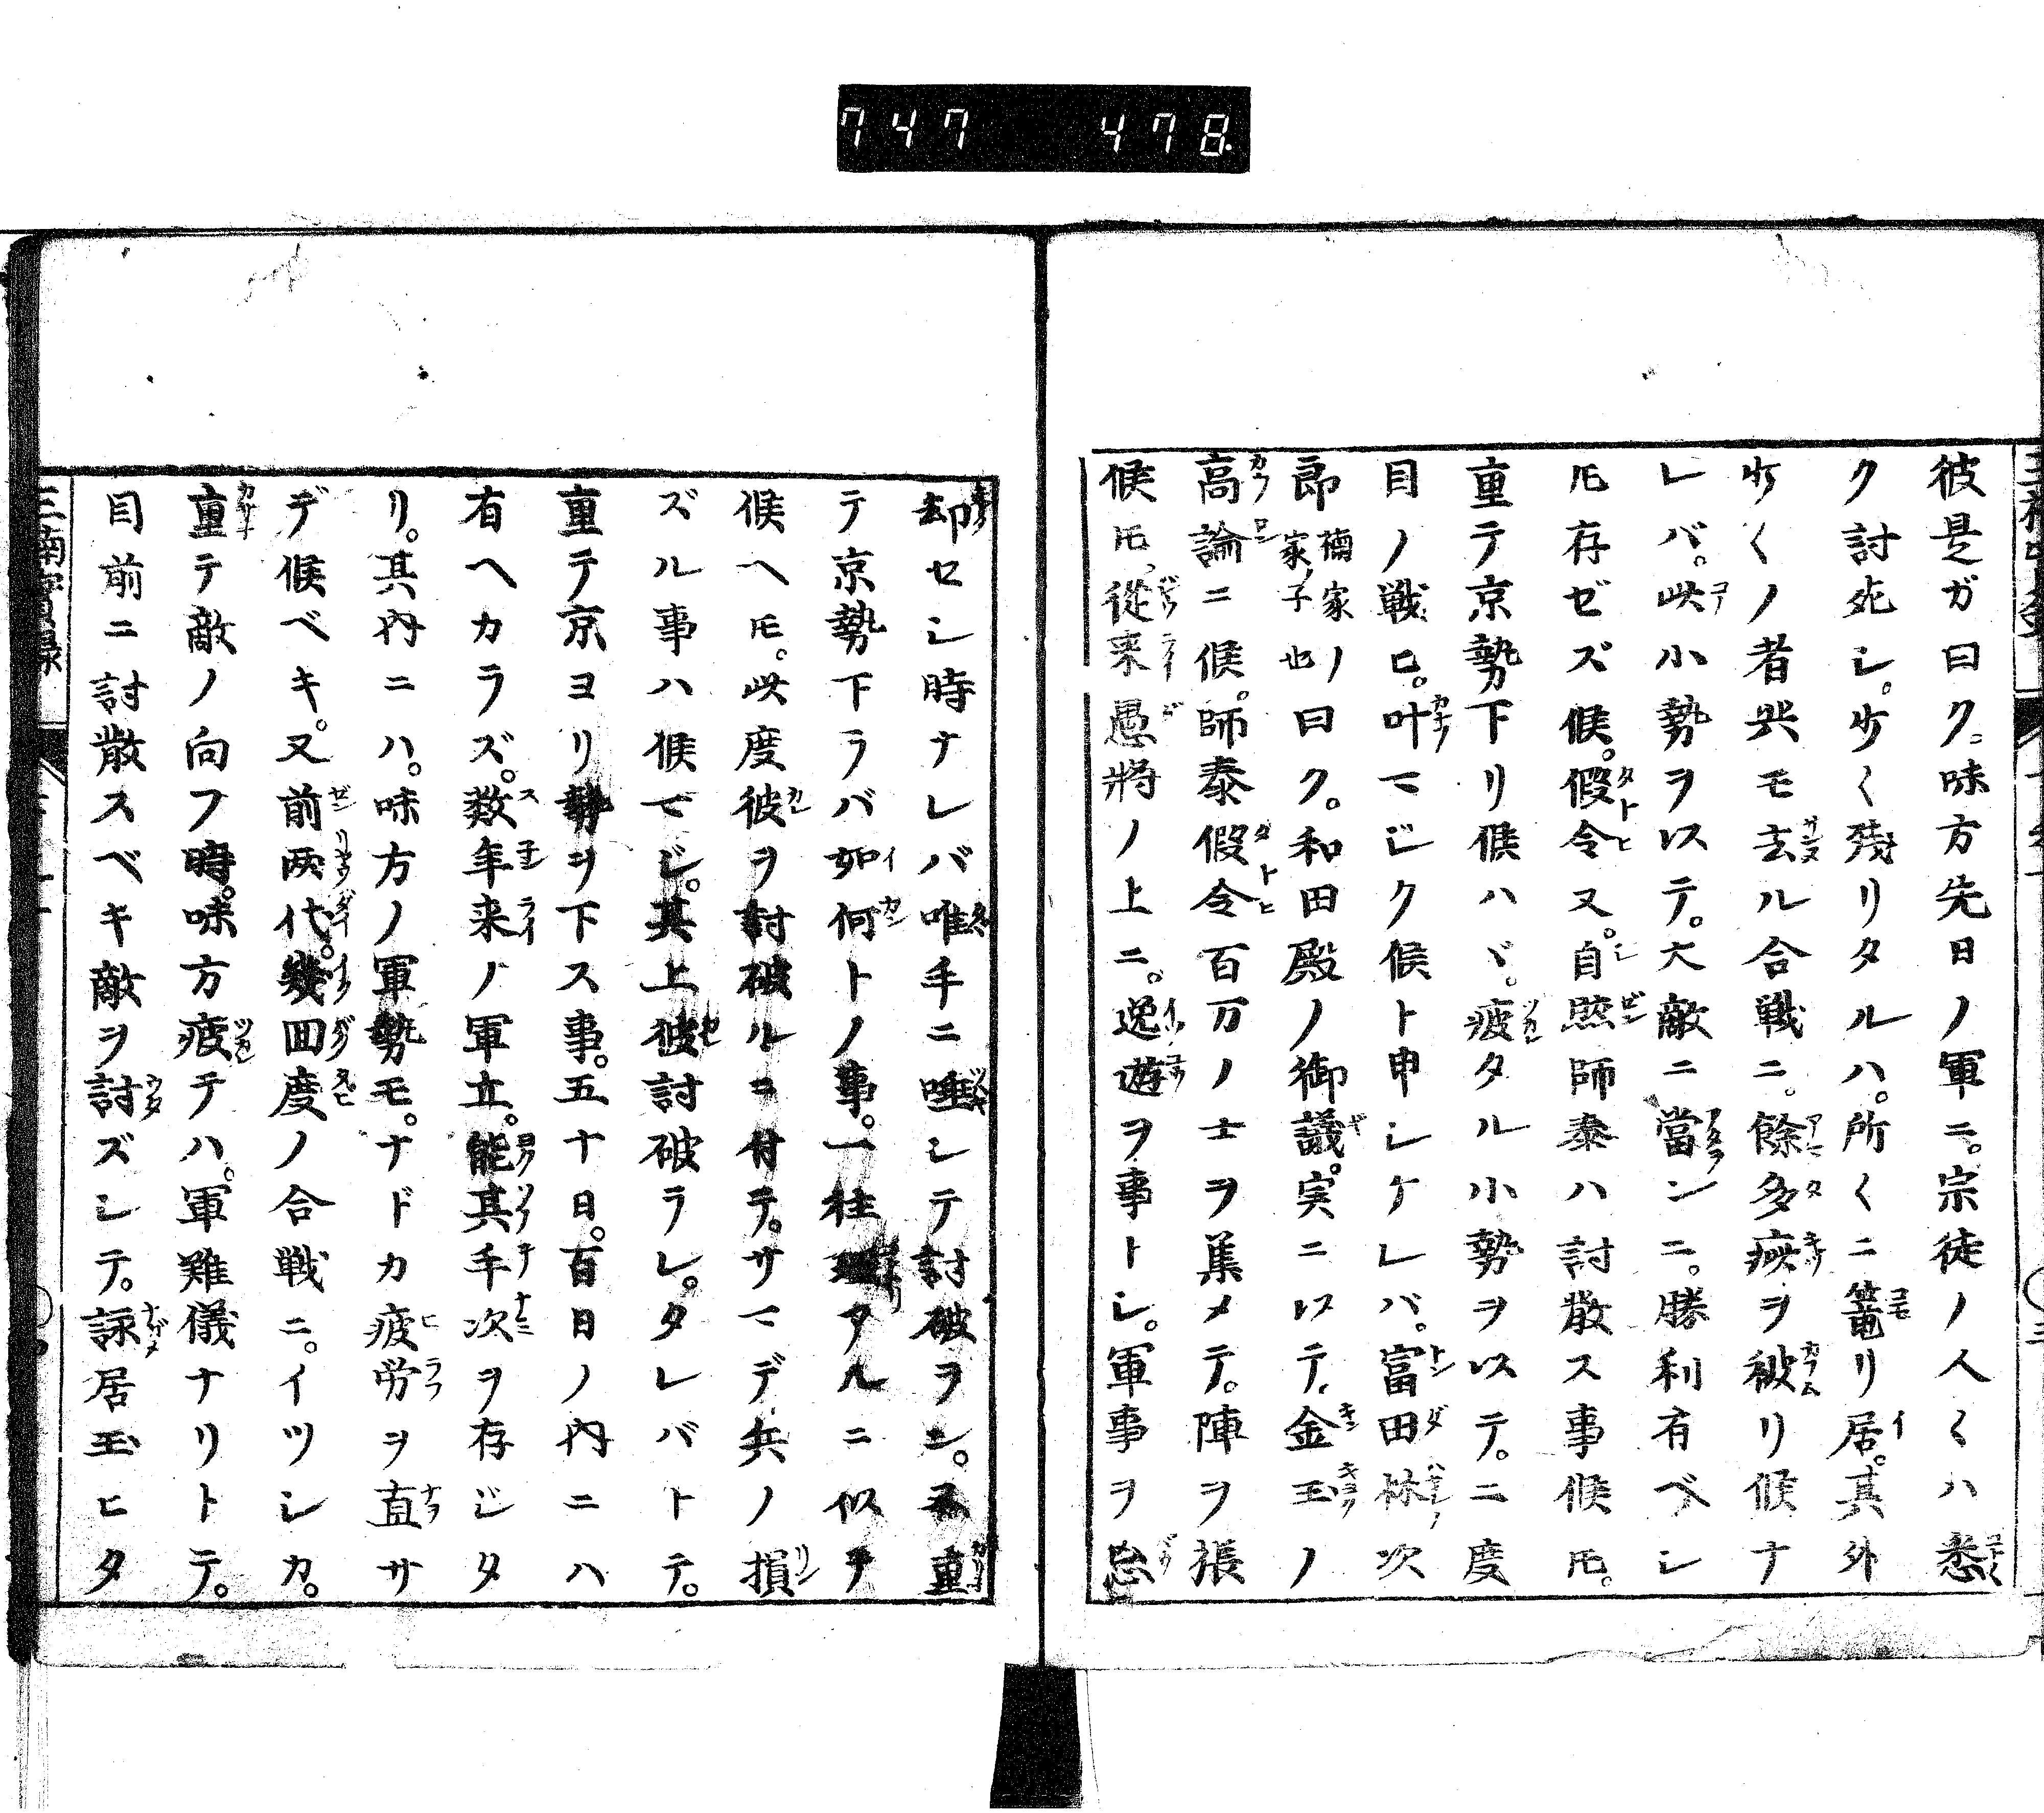 747 478
彼是ガ曰ク。味方先日ノ軍ニ。宗徒ノ人〱ハ悉
ク討死シ。少〱残リタルハ。所〱ニ篭リ居。其外
少〱ノ者共モ去ル合戦ニ。餘多疵ヲ被リ候ナ
レバ。此小勢ヲ以テ。大敵ニ當ンニ。勝利有ベシ
𪜈存ゼズ候。假令又。自然師泰ハ討散ス事候𪜈。
重テ京勢下リ候ハヾ。疲タル小勢ヲ以テ。二度
目ノ戦ヒ。叶マジク候ト申シケレバ。富田林次
郎楠家ノ家ノ子也曰ク。和田殿ノ御議。実ニ以テ金玉ノ
高論ニ候。師泰假令百万ノ士ヲ集メテ。陣ヲ張
候𪜈、從来愚將ノ上ニ。逸遊ヲ事トシ。軍事ヲ忘
却セシ時ナレバ唯手ニ唾シテ討破ヲン。又重
テ京勢下ラバ如何トノ事。一往理アルニ似テ
候ヘ𪜈。此度彼ヲ討破ルニ付テ。サマデ兵ノ損
ズル事ハ候マジ。其上彼討破ラレ。タレバトテ。
重テ京ヨリ勢ヲ下ス事。五十日。百日ノ内ニハ
有ヘカラズ。数年来ノ軍立。能其手次ヲ存ジタ
リ。其内ニハ。味方ノ軍勢モ。ナドカ疲労ヲ直サ
デ候ベキ。又前両代。幾回度ノ合戦ニ。イツシカ。
重テ敵ノ向フ時。味方疲テハ。軍難儀ナリトテ。
目前ニ討散スベキ敵ヲ討ズシテ。詠居玉ヒタ